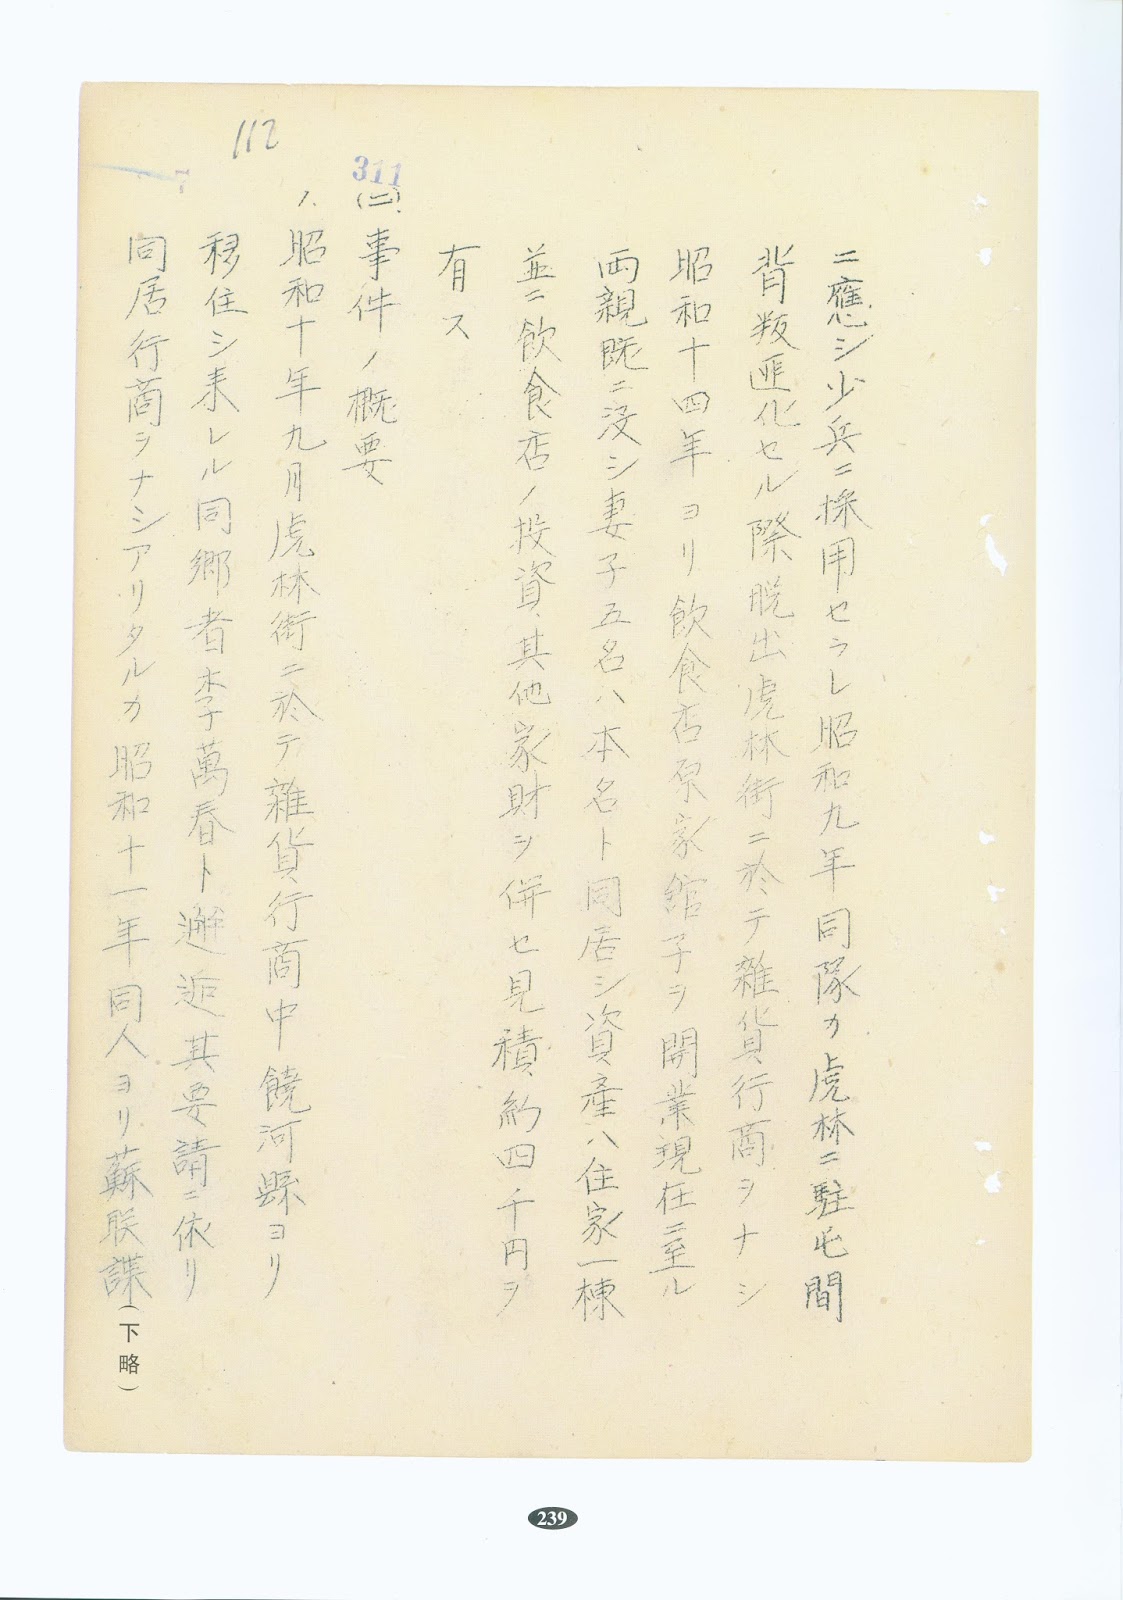 112
311
7
ニ應シ少兵ニ採用セラレ昭和九年同隊カ虎林ニ駐屯間
背叛匪化セル際脱出虎林街ニ於テ雜貨行商ヲナシ
昭和十四年ヨリ飲食店原家館子ヲ開業現在ニ至ル
両親既ニ没シ妻子五名ハ本名ト同居シ資產ハ住家一棟
並ニ飲食店ノ投資其他家財ヲ併セ見積約四千円ヲ
有ス
(二)事件ノ概要
1.昭和十年九月虎林街ニ於テ雜貨行商中饒河縣ヨリ
移住シ来レル同郷者李萬春ト邂逅其要請ニ依リ
同居行商ヲナシアリタルカ昭和十一年同人ヨリ蘇联諜(下略)
239